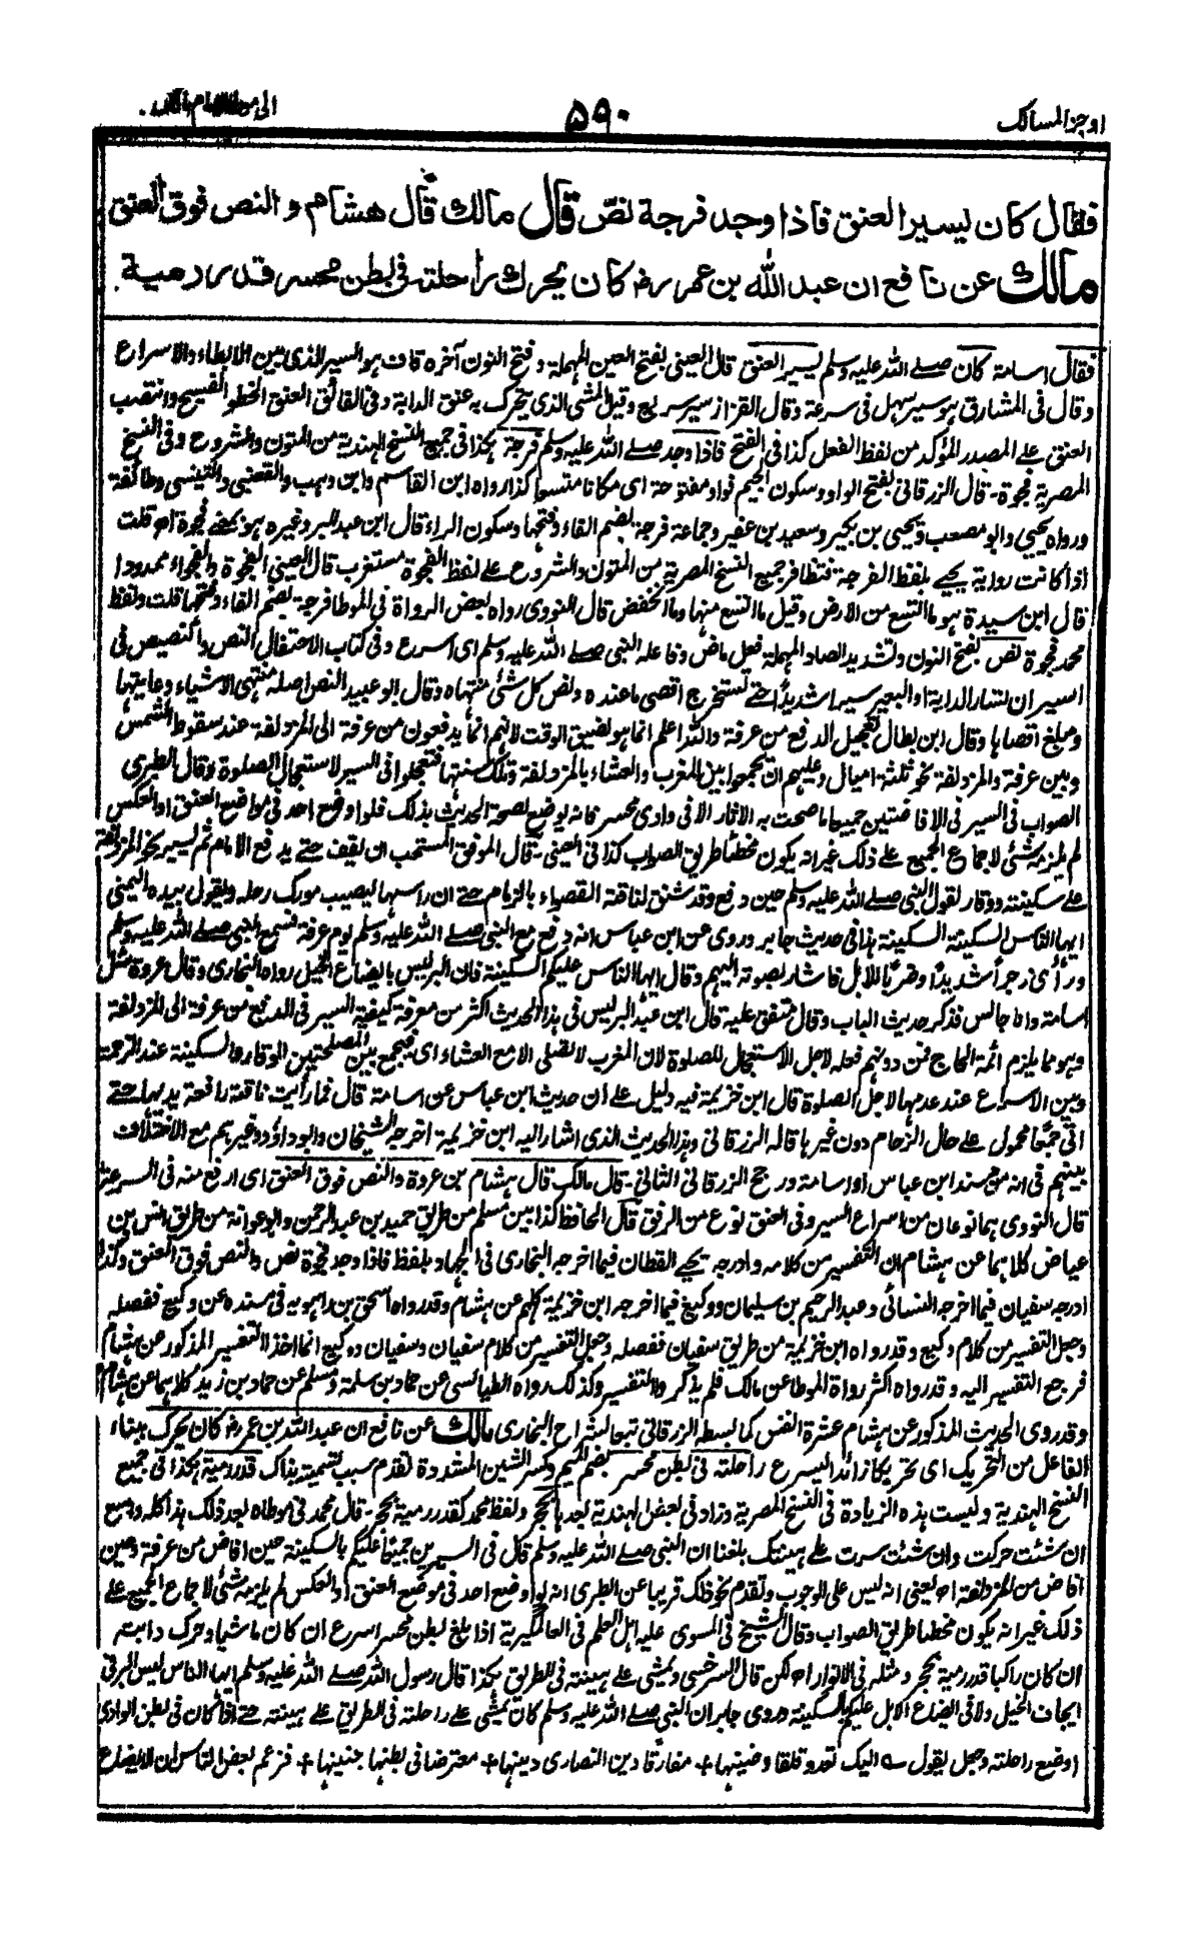 اوجز المسالك
٥٩٠
الى موطا الامام مالك
فقال كان يسير العنق فاذا وجد فرجة نصّ قال مالك قال هشام والنص فوق العنق
مالك عن نافع ان عبد الله بن عمر رض كان يحرك راحلته فى بطن محسر قدر رمية
فقال اسامة كان صلے الله عليه وسلم يسير العنق قال العينى بفتح العين المهملة وفتح النون آخره قاف هو السير الذى بين الابطاء والاسراع
وقال فى المشارق هو سير سهل فى سرعة وقال القزاز سير سريع وقيل المشى الذى يتحرك به عنق الدابة وفى الفائق العنق الخطو الفسيح وانتصب
العنق على المصدر المؤكد من لفظ الفعل كذا فى الفتح فاذا وجد صلے الله عليه وسلم فرجة هكذا فى جميع النسخ الهندية من المتون والشروح وفى النسخ
المصرية فجوة - قال الزرقانى بفتح الواو وسكون الجيم فواو مفتوحة اى مكانا متسعا كذا رواه ابن القاسم وابن وهب والقعنبى والتنيسى وطائفة
ورواه يحيى وابو مصعب ويحيى بن بكير وسعيد بن عفير وجماعة فرجة بضم الفاء وفتحها وسكون الراء قال ابن عبد البر وغيره هو بمعنے فجوة اه قلت
اذا كانت رواية يحيے بلفظ الفرجة فتظافر جميع النسخ المصرية من المتون والشروح على لفظ الفجوة مستغرب قال العينى الفجوة والفجواء ممدودا
قال ابن سيدة هو ما اتسع من الارض وقيل ما اتسع منها وما انخفض قال النووى رواه بعض الرواة فى الموطا فرجة بضم الفاء وفتحها قلت ولفظ
محمد فجوة نص بفتح النون وتشديد الصاد المهملة فعل ماض وفاعله النبى صلے الله عليه وسلم اى اسرع وفى كتاب الاحتفال النص والتنصيص فى
السير ان تسار الدابة او البعير سيرا شديداً حتے تستخرج اقصى ما عنده ونص كل شئ منتهاه وقال ابو عبيد النص اصله منتهى الاشياء وغايتها
ومبلغ اقصاها وقال ابن بطال تعجيل الدفع من عرفة والله اعلم انما هو لضيق الوقت لانهم انما يدفعون من عرفة الى المزدلفة عند سقوط الشمس
وبين عرفة والمزدلفة نحو ثلثة اميال وعليهم ان يجمعوا بين المغرب والعشاء بالمزدلفة وتلك سنتها فتعجلوا فى السير لاستعجال الصلوة وقال الطبرى
الصواب فى السير فى الافاضتين جميعا ما صحت به الاثار الا فى وادى محسر فانه يوضع لصحة الحديث بذلك فلو اوضع احد فى مواضع العنق او العكس
لم يلزمه شئ لاجماع الجميع على ذلك غير انه يكون مخطئا طريق الصواب كذا فى العينى - قال الموفق المستحب ان يقف حتے يدفع الامام ثم يسير نحو المزدلفة
علے سكينته ووقار لقول النبى صلے الله عليه وسلم حين دفع وقد شنق لناقته القصواء بالزمام حتے ان راسها ليصيب مورك رحله ويقول بيده اليمنى
ايها الناس السكينة السكينة هذا فى حديث جابر وروى عن ابن عباس انه دفع مع النبى صلے الله عليه وسلم يوم عرفة فسمع النبى صلے الله عليه وسلم
وراءه زجراً شديداً وضرباً للابل فاشار بصوته اليهم وقال ايها الناس عليكم السكينة فان البر ليس بايضاع الخيل رواه البخارى وقال عروة سئل
اسامة وانا جالس فذكر حديث الباب وقال متفق عليه قال ابن عبد البر ليس فى هذا الحديث اكثر من معرفة كيفية السير فى الدفع من عرفة الى المزدلفة
وهو مما يلزم ائمة الحاج فمن دونهم فعله لاجل الاستعجال للصلوة لان المغرب لا تصلى الا مع العشاء اى فيجمع بين المصلحتين الوقار والسكينة عند الزحمة
وبين الاسراع عند عدمها لاجل الصلوة قال ابن خزيمة فيه دليل على ان حديث ابن عباس عن اسامة قال فما رأيت ناقته رافعة يديها حتے
اتى جمعًا محمول على حال الزحام دون غيرها قاله الزرقانى وهذا الحديث الذى اشار اليه ابن خزيمة اخرجه الشيخان وابو داؤد وغيرهم مع الاختلاف
بينهم فى انه من مسند ابن عباس او اسامة ورجح الزرقانى الثانى - قال مالك قال هشام بن عروة والنص فوق العنق اى ارفع منه فى السرعة
قال النووى هما نوعان من اسراع السير وفى العنق نوع من الرفق قال الحافظ كذا بين مسلم من طريق حميد بن عبد الرحمن وابو عوانة من طريق انس بن
عياض كلاهما عن هشام ان التفسير من كلامه وادرجه يحيے القطان فيما اخرجه البخارى فى الجهاد بلفظ فاذا وجد فجوة نص والنص فوق العنق وكذا
ادرجه سفيان فيما اخرجه النسائى وعبد الرحيم بن سليمان ووكيع فيما اخرجه ابن خزيمة كلهم عن هشام وقد رواه اسحق بن راهويه فى مسنده عن وكيع ففصله
وجعل التفسير من كلام وكيع وقد رواه ابن خزيمة من طريق سفيان ففصله وجعل التفسير من كلام سفيان وسفيان ووكيع انما اخذا التفسير المذكور عن هشام
فرجع التفسير اليه وقد رواه اكثر رواة الموطا عن مالك فلم يذكروا التفسير وكذلك رواه الطيالسى عن حماد بن سلمة ومسلم عن حماد بن زيد كلاهما عن هشام
وقد روى الحديث المذكور عن هشام عشرة انفس كما بسطه الزرقانى تبعا لشراح البخارى مالك عن نافع ان عبد الله بن عمر رض كان يحرك ببناء
الفاعل من التحريك اى تحريكا زائدا ليسرع راحلته فى بطن محسر بضم الميم وكسر الشين المشددة تقدم سبب تسميته بذاك قدر رمية هكذا فى جميع
النسخ الهندية وليست هذه الزيادة فى النسخ المصرية وزاد فى بعض الهندية بعدها بحجر ولفظ محمد كقدر رمية بحجر - قال محمد فى موطاه بعد ذلك هذا كله واسع
ان شئت حركت وان شئت سرت على هينتك بلغنا ان النبى صلے الله عليه وسلم قال فى السيرين جميعًا عليكم بالسكينة حين افاض من عرفة وحين
افاض من المزدلفة اه يعنى انه ليس على الوجوب وتقدم نحو ذلك قريبا عن الطبرى انه لو اوضع احد فى موضع العنق او العكس لم يلزمه شئ لاجماع الجميع على
ذلك غير انه يكون مخطئا طريق الصواب وقال الشيخ فى المسوى عليه اهل العلم فى العالمگيرية اذا بلغ بطن محسر اسرع ان كان ماشيا وحرك دابته
ان كان راكبا قدر رمية بحجر ومثله فى الانوار اه لكن قال السرخسى ويمشى على هينته فى الطريق هكذا قال رسول الله صلے الله عليه وسلم ايها الناس ليس البر فى
ايجاف الخيل ولا فى ايضاع الابل عليكم بالسكينة وروى جابر ان النبى صلے الله عليه وسلم كان يمشى على راحلته فى الطريق على هينته حتے اذا كان فى بطن الوادى
اوضع راحلته وجعل يقول ؎ اليك تعدو قلقا وضينها + مفارقا دين النصارى دينها + معترضا فى بطنها جنينها + فزعم بعض الناس ان الايضاع